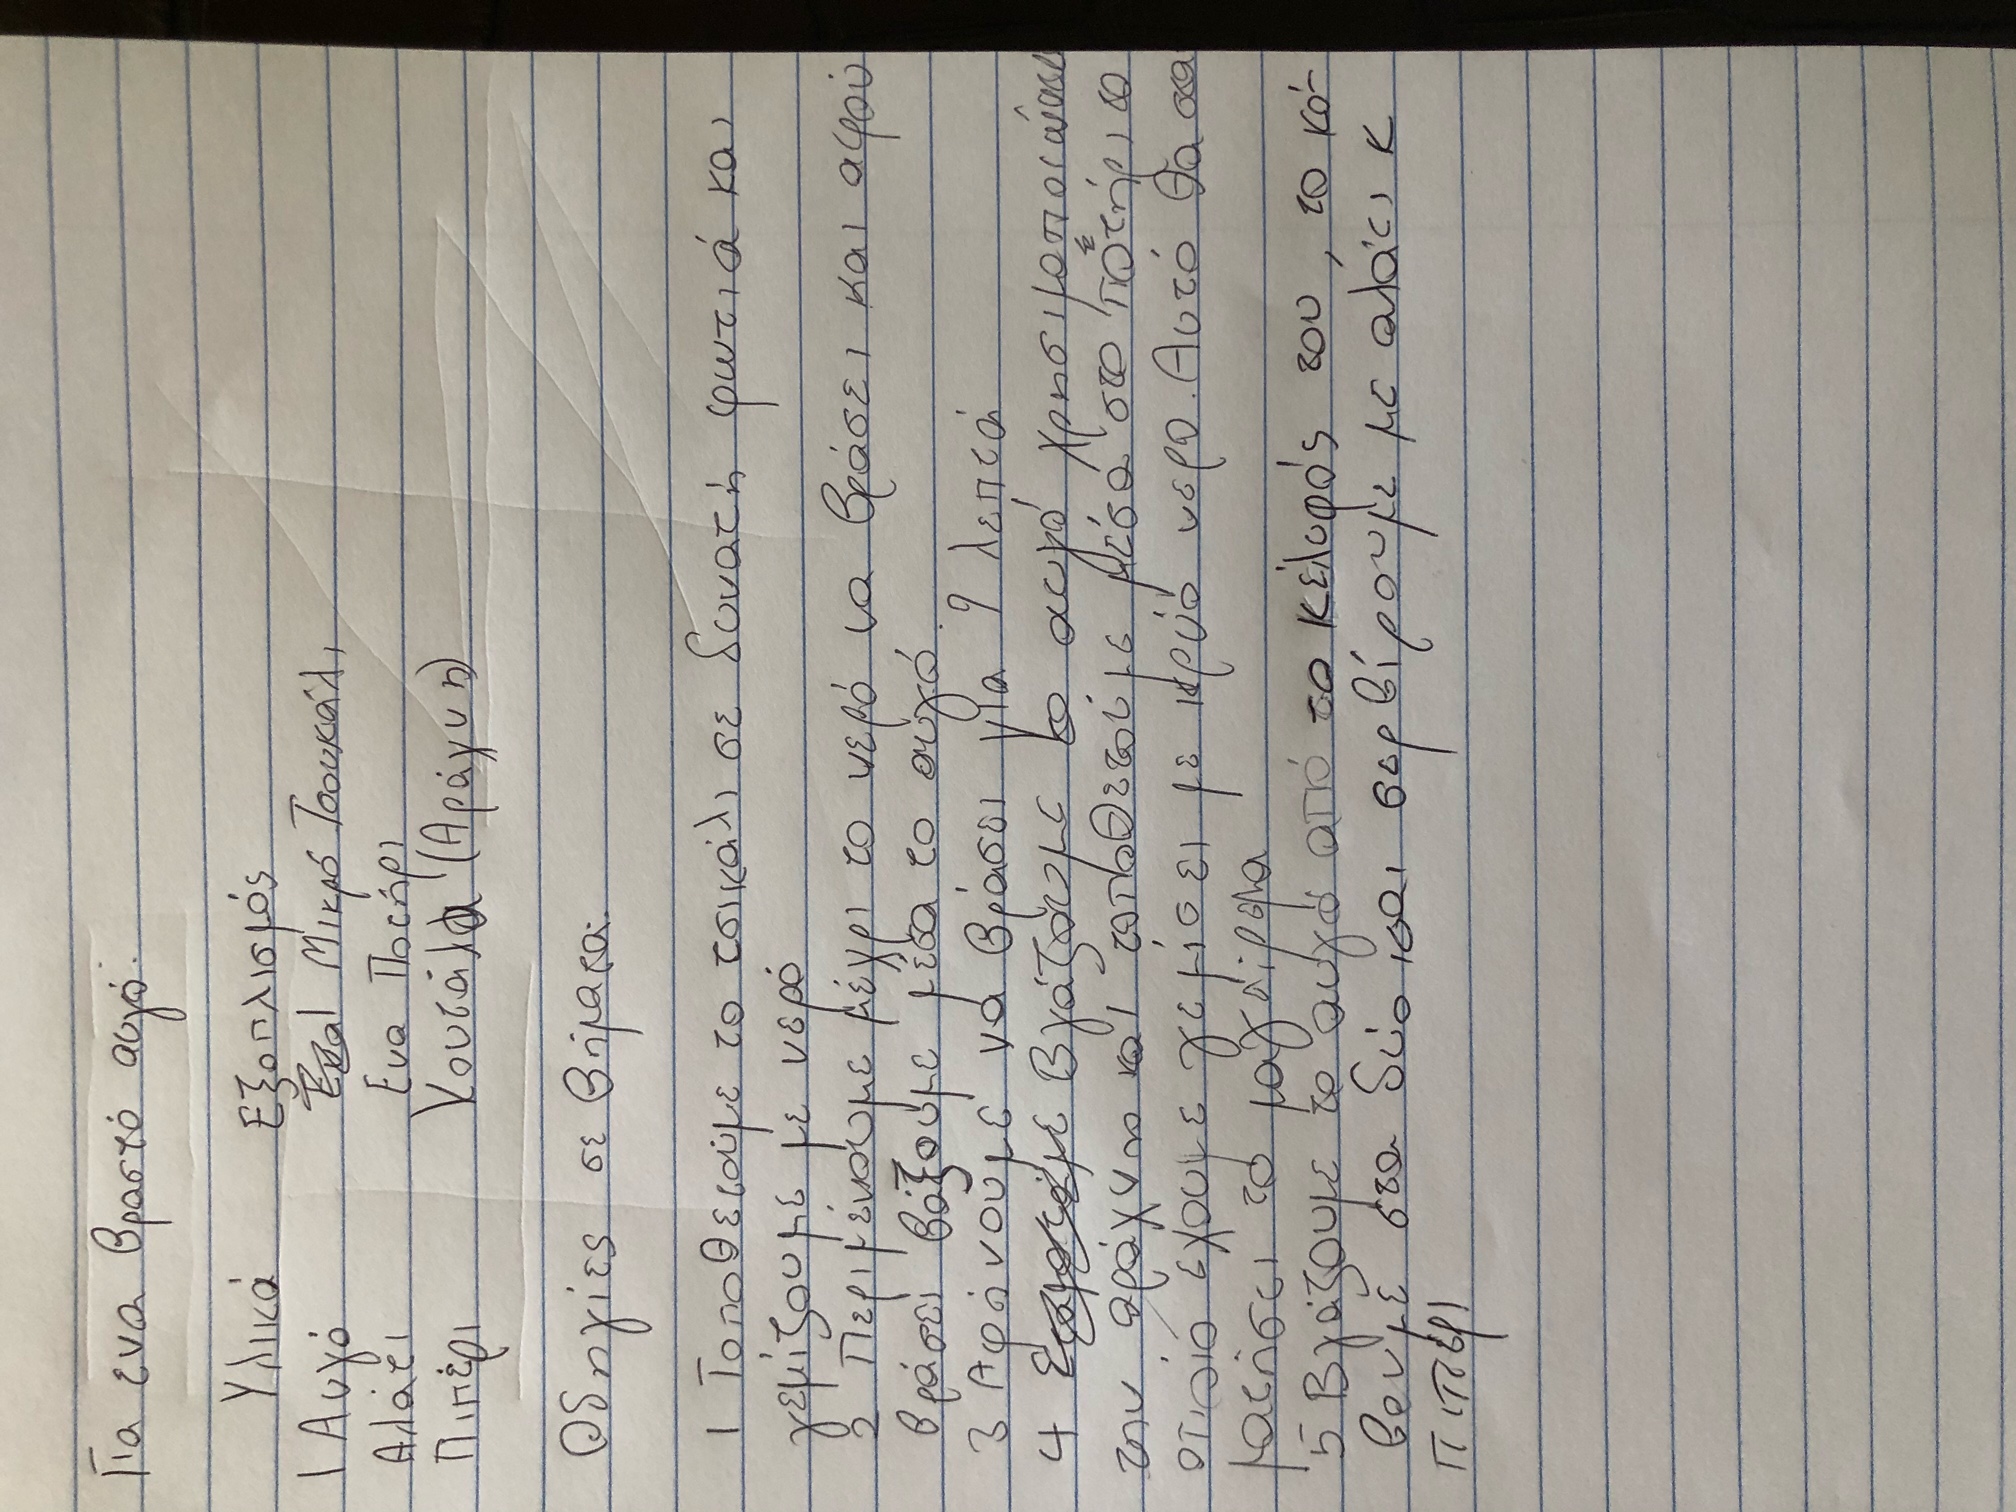 Για ενα βραστό αυγό:
Υλικά Εξοπλισμός
1 Αυγό 1 Μικρό Τσουκάλι
Αλάτι Ενα Ποτήρι
Πιπέρι Κουτάλα (Αράχνη)
Οδηγίες σε βήματα:
1 Τοποθετούμε το τσικάλι σε δυνατή φωτιά και
γεμίζουμε με νερό
2 Περιμένουμε μέχρι το νερό να βράσει και αφού
βράσει βάζουμε μέσα το αυγό.
3 Αφήνουμε να βράσει για 9 λεπτά
4 Βγάζουμε το αυγό χρησιμοποιώντας
την αράχνη και τοποθετούμε μέσα στο ποτήρι το
οποίο έχουμε γεμίσει με κρύο νερο. Αυτό θα στα
ματήσει το μαγείρεμα
5 Βγάζουμε το αυγό από το κέλυφός του, το κό-
βουμε στα δύο και σερβίρουμε με αλάτι κ
πιπέρι